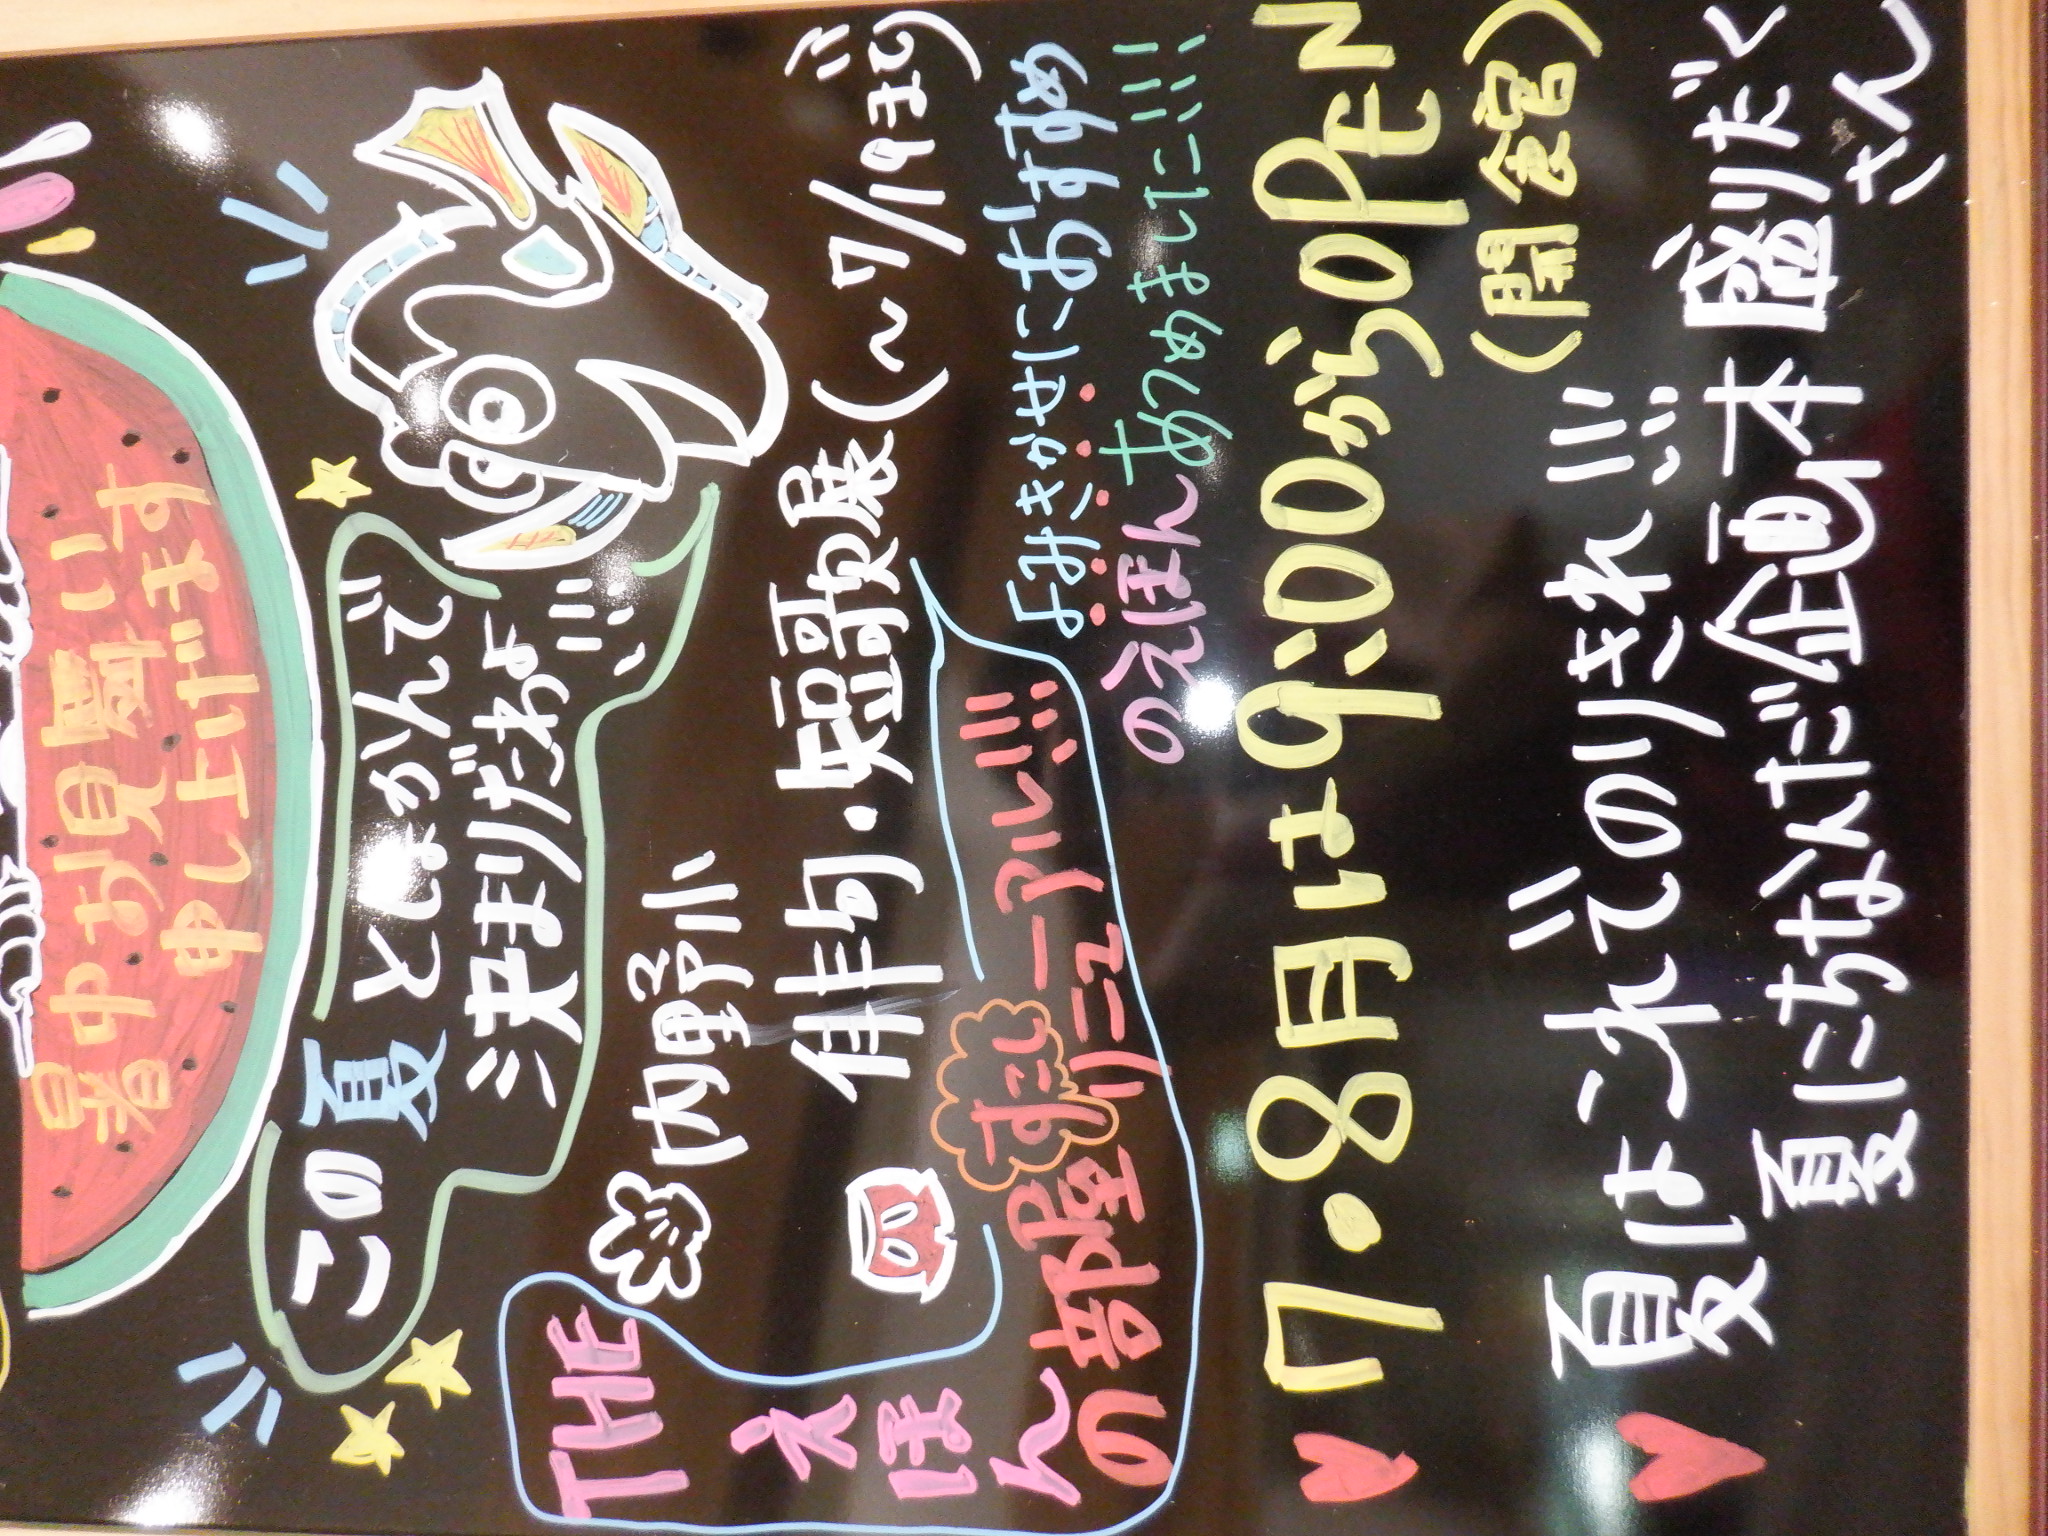 暑中お見舞い
申し上げます
この夏とょかんで
決まりだねょ!!!
内野小
俳句・短歌展(~7/19まで)
THE
えほん
の部屋すこしリニューアル!!!
よみきかせにおすすめ
のえほんあつめました!!!
7・8月は9:00からOPEN
(開館)
夏はこれでのりきれ!!!
夏にちなんだ企画本盛りだく
さん